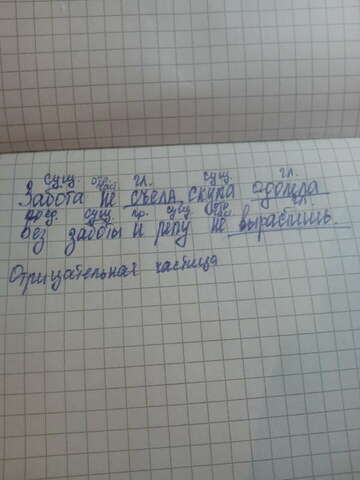 сущ. отр. част. гл. сущ. гл.
Забота не съела скука одолела
пред. сущ. пр. сущ. отр. част. гл.
Без заботы и репу не вырастишь.
Отрицательная частица